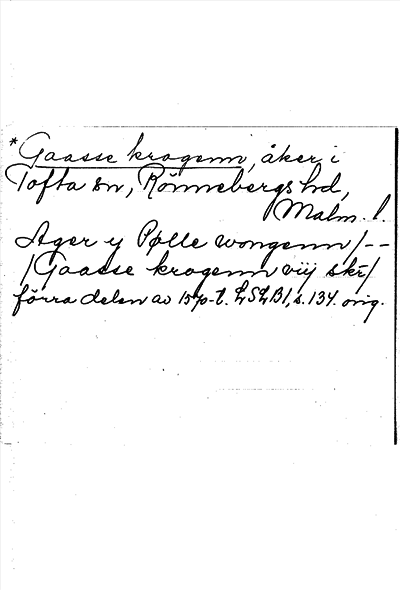 *Gaasse krogenn, åker i
Tofta sn, Rönnebergs hd,
Malm. l.
Ager y Pølle wongenn/--
/Gaasse krogenn viij skr/
förra delen av 1570-t. LSLB1, s. 134. orig.